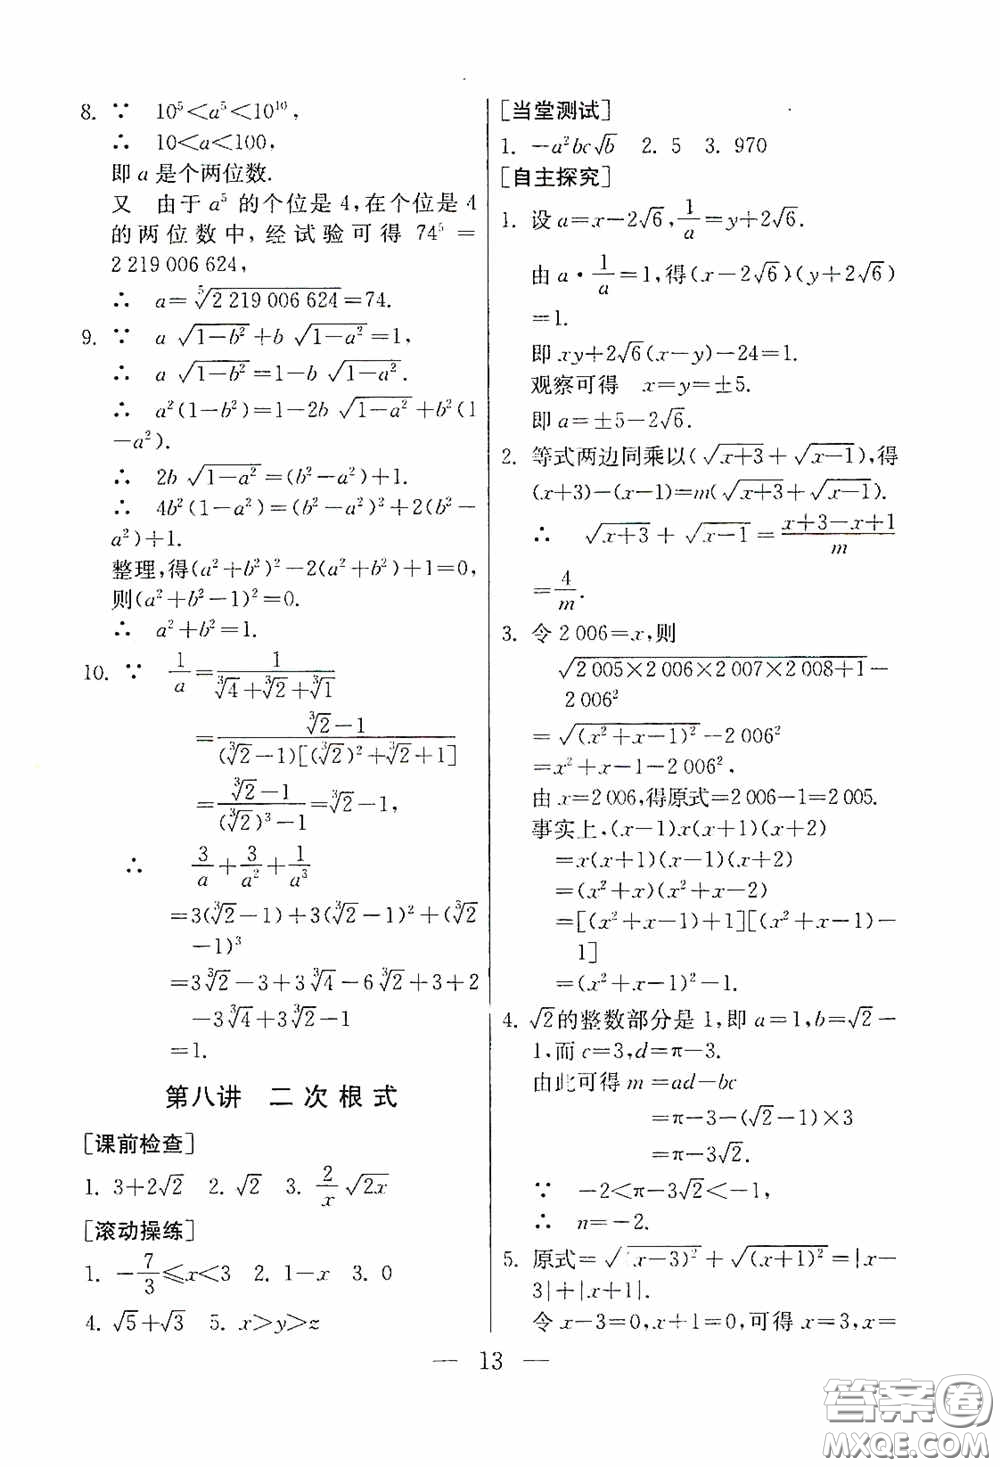 8. ∵ 10⁵<a⁵<10¹⁰,
∴ 10<a<100,
即 a 是个两位数.
又 由于 a⁵ 的个位是 4,在个位是 4
的两位数中,经试验可得 74⁵=
2 219 006 624,
∴ a=⁵√(2 219 006 624)=74.
9. ∵ a √(1-b²)+b √(1-a²)=1,
∴ a √(1-b²)=1-b √(1-a²).
∴ a²(1-b²)=1-2b √(1-a²)+b²(1
-a²).
∴ 2b √(1-a²)=(b²-a²)+1.
∴ 4b²(1-a²)=(b²-a²)²+2(b²-
a²)+1.
整理,得(a²+b²)²-2(a²+b²)+1=0,
则(a²+b²-1)²=0.
∴ a²+b²=1.
10. ∵ 1/a=1/(∛4+∛2+∛1)
=(∛2-1)/((∛2-1)[(∛2)²+∛2+1])
=(∛2-1)/((∛2)³-1)=∛2-1,
∴ 3/a+3/a²+1/a³
=3(∛2-1)+3(∛2-1)²+(∛2
-1)³
=3∛2-3+3∛4-6∛2+3+2
-3∛4+3∛2-1
=1.
第八讲 二次根式
[课前检查]
1. 3+2√2 2. √2 3. 2/x √(2x)
[滚动操练]
1. -7/3≤x<3 2. 1-x 3. 0
4. √5+√3 5. x>y>z
[当堂测试]
1. -a²bc√b 2. 5 3. 970
[自主探究]
1. 设 a=x-2√6,1/a=y+2√6.
由 a·1/a=1,得(x-2√6)(y+2√6)
=1.
即 xy+2√6(x-y)-24=1.
观察可得 x=y=±5.
即 a=±5-2√6.
2. 等式两边同乘以(√(x+3)+√(x-1)),得
(x+3)-(x-1)=m(√(x+3)+√(x-1)).
∴ √(x+3)+√(x-1)=(x+3-x+1)/m
=4/m.
3. 令 2 006=x,则
√(2 005×2 006×2 007×2 008+1)-
2 006²
=√((x²+x-1)²)-2 006²
=x²+x-1-2 006²,
由 x=2 006,得原式=2 006-1=2 005.
事实上,(x-1)x(x+1)(x+2)
=x(x+1)(x-1)(x+2)
=(x²+x)(x²+x-2)
=[(x²+x-1)+1][(x²+x-1)-
1]
=(x²+x-1)²-1.
4. √2的整数部分是 1,即 a=1,b=√2-
1,而 c=3,d=π-3.
由此可得 m=ad-bc
=π-3-(√2-1)×3
=π-3√2.
∵ -2<π-3√2<-1,
∴ n=-2.
5. 原式=√((x-3)²)+√((x+1)²)=|x-
3|+|x+1|.
令 x-3=0,x+1=0,可得 x=3,x=
— 13 —
答案圈
MXQE.COM